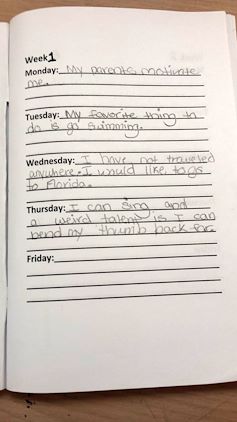 Week1
Monday: My parents motivate
me.
Tuesday: My favorite thing to
do is go swimming.
Wednesday: I have not traveled
anywhere. I would like to go
to Florida.
Thursday: I can sing and
a weird talent is I can
bend my thumb back far.
Friday: